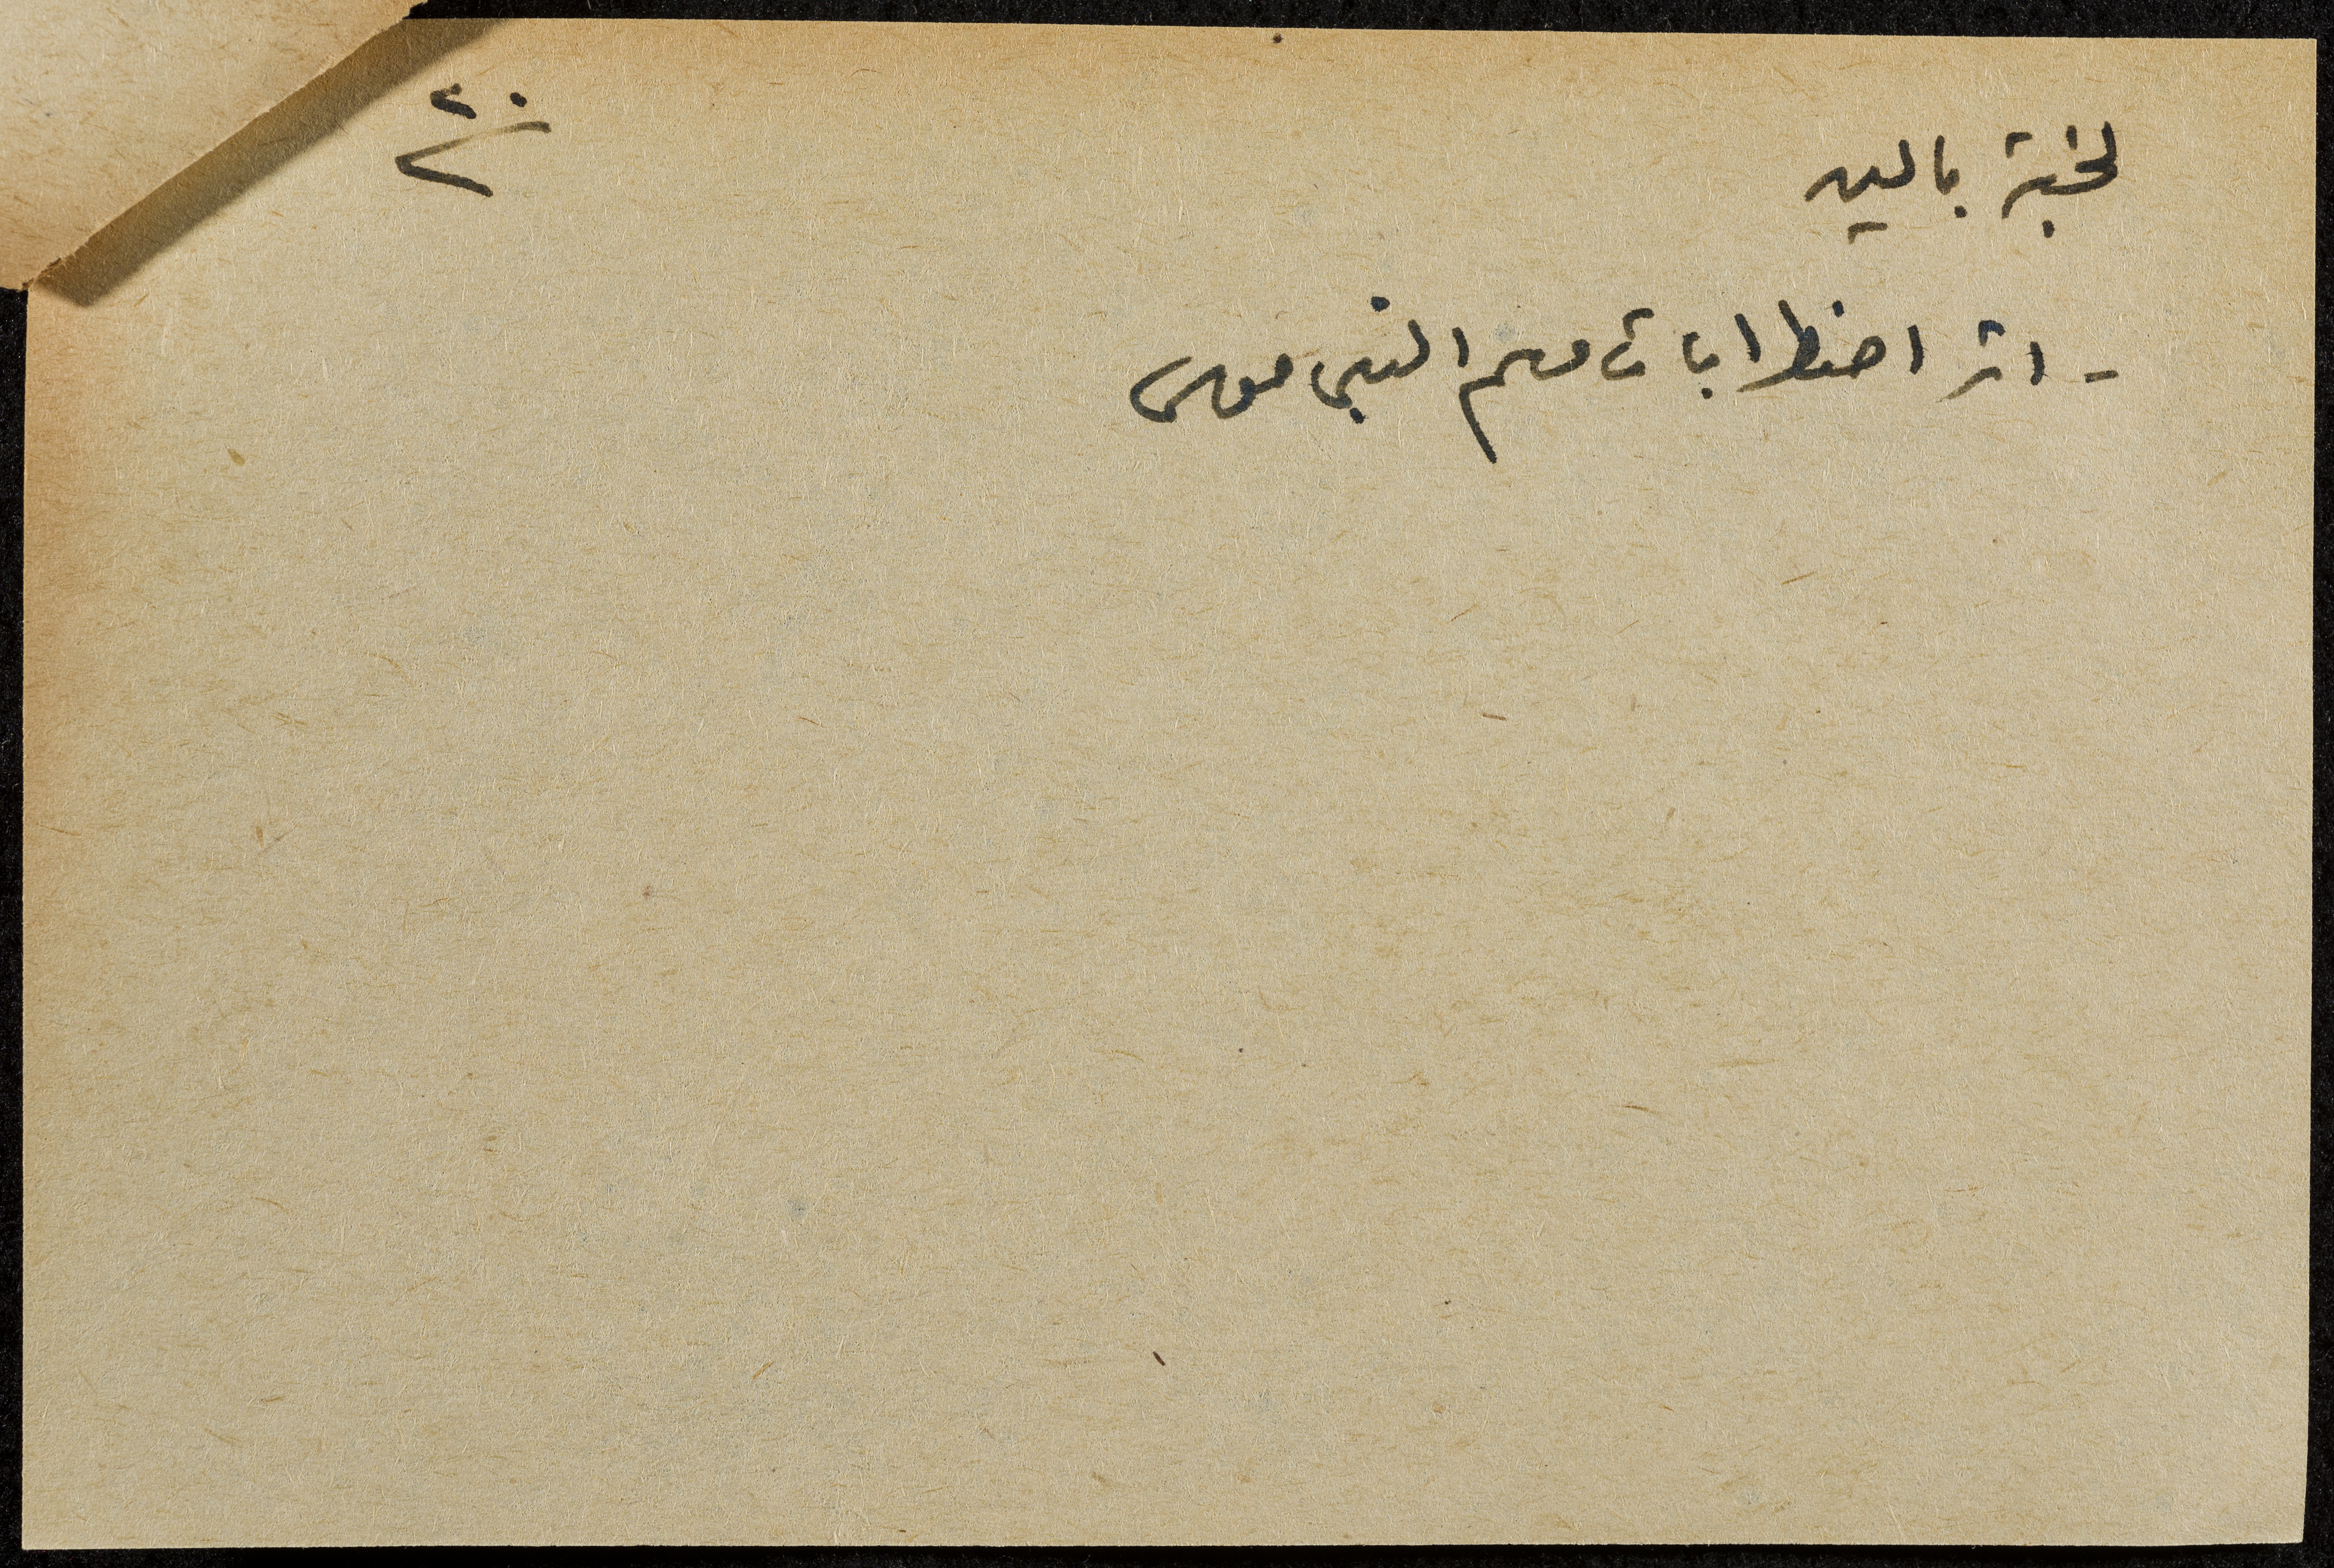 لجنة بالين ٢٠
- اثر اضطرابات موسم النبي موسى